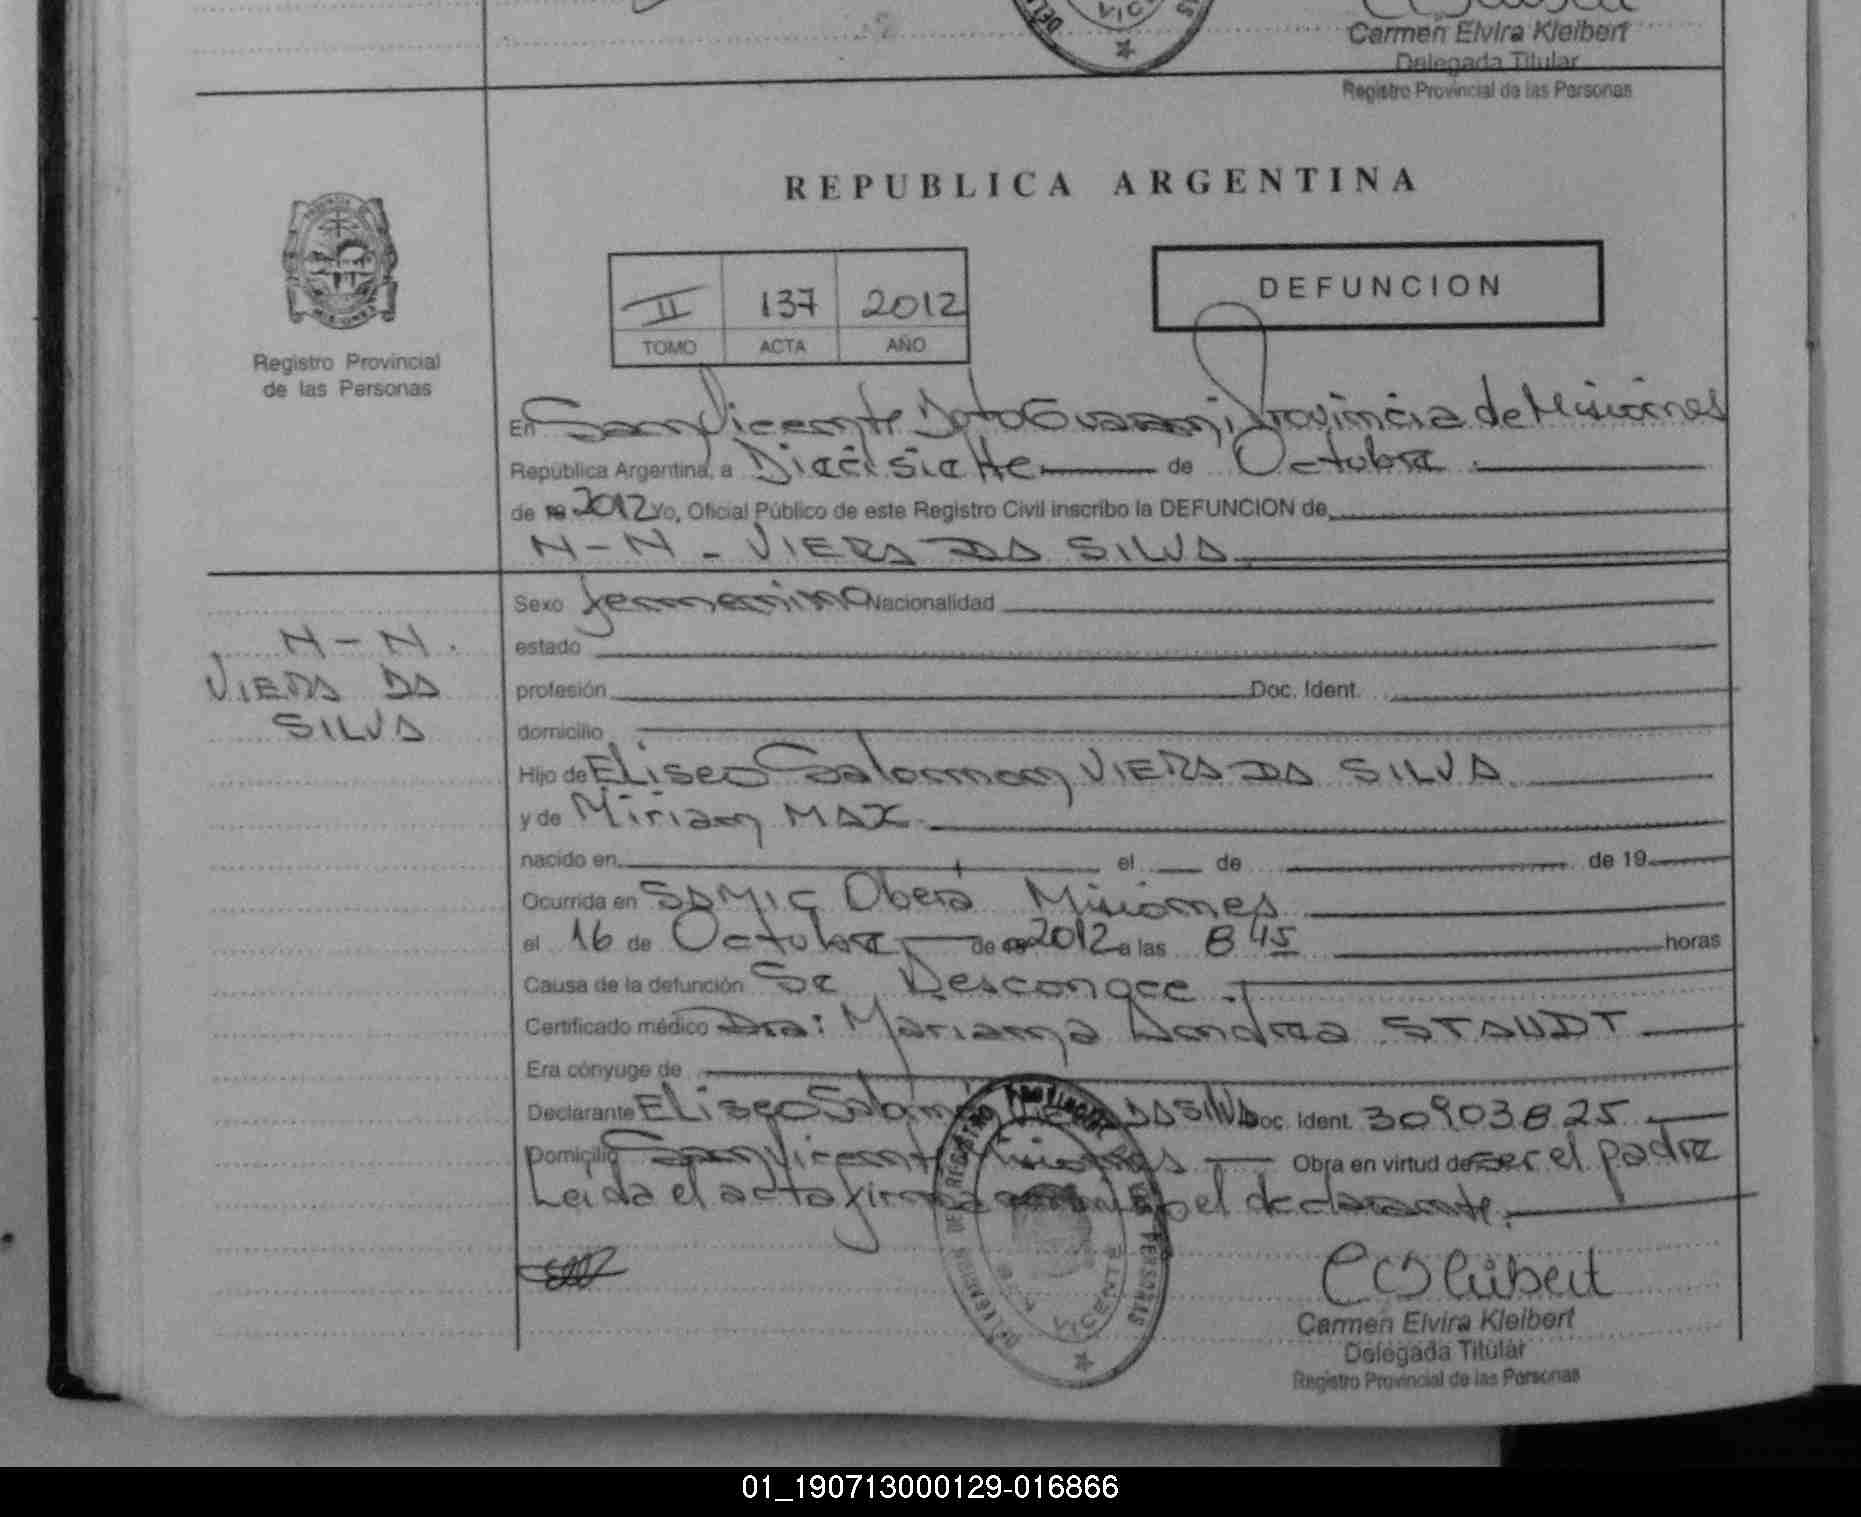 Carmen Elvira Kleibert
Delegada Titular
Registro Provincial de las Personas
REPUBLICA ARGENTINA
II 137 2012
TOMO ACTA AÑO
DEFUNCION
Registro Provincial
de las Personas
En San Vicente Dpto Guarani, Provincia de Misiones
República Argentina, a Diecisiette de Octubre
de 19 2012 Yo, Oficial Público de este Registro Civil inscribo la DEFUNCION de
N-N - VIERA DA SILVA
N-N.
VIERA DA
SILVA
Sexo femenino Nacionalidad
estado
profesión Doc. Ident.
domicilio
Hijo de Eliseo Salomon VIERA DA SILVA
y de Miriam MAX
nacido en el de de 19
Ocurrida en SAMIC Oberá Misiones
el 16 de Octubre de 2012 a las 8 45 horas
Causa de la defunción Se Desconoce
Certificado médico Dra: Mariana Andrea STAUDT
Era cónyuge de
Declarante Eliseo Salomón VIERA DA SILVA Doc. Ident. 30903825
Domicilio San Vicente Misiones Obra en virtud de ser el padre
Leída el acta firma el declarante.
DELEGACION DE REGISTRO PROVINCIAL DE LAS PERSONAS
VICENTE
Carmen Elvira Kleibert
Delegada Titular
Registro Provincial de las Personas
01_190713000129-016866